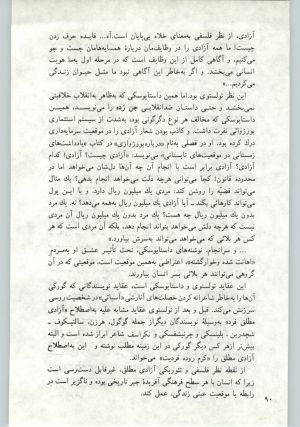 آزادی، از نظر فلسفی به‌معنای خلاء بی‌پایان است.آه... فایده حرف زدن
چیست! ما همه آزادی را در وظایف‌مان درباره همسایه‌هامان جست و جو
می‌کنیم، و آگاهی کامل از این وظایف است که در مرحله اول به‌ما هویت
انسانی می‌بخشد. و اگر به‌خاطر این آگاهی نبود ما مثل حیوان زندگی
می‌کردیم...»
این نظر تولستوی بود. اما همین داستایوسکی که به‌ظاهر به‌انقلاب خلاقیتی
نمی‌بخشد و حتی داستان ضدانقلابی جن زده را می‌نویسد، همین
داستایوسکی که مخالف هر نوع دگرگونی بود، به‌شدت از سیستم استثماری
بورژوازی نفرت داشت. و کاذب بودن شعار آزادی را در موقعیت سرمایه‌داری
درك کرده بود. او در فصلی به‌نام «درباره‌بورژوازی» در کتاب «یادداشت‌های
زمستانی در موقعیت‌های تابستانی» می‌نویسد: «آزادی چیست؟ آزادی! کدام
آزادی؟ آزادی برابر است با انجام آن چه آن‌ها دل‌شان می‌خواهد اما در
محدوده قانون: کجا می‌توانی هرچه دلت می‌خواهد انجام بدهی؟ یك مثال
می‌تواند قضیّه را روشن کند: مردی یك میلیون ریال دارد، و با این پول
می‌تواند کارهائی بکند ـ آیا آزادی یك میلیون ریال به‌همه می‌دهد؟ نه. مرد
بدون یك میلیون ریال چه هست؟ مرد بدون یك میلیون ریال آن مردی
نیست که هرچه دلش می‌خواهد بتواند انجام دهد، بلکه آن مردی است که هر
کس هر بلائی که می‌خواهد می‌تواند به‌سرش بیاورد.»
... و سرانجام، نوشته‌های داستایوسکی، تحت تأثیر عشق او به‌مردم
«اهانت شده و خوارگشته»، اعتراضی به‌همین موقعیت است، موقعیتی که در آن
گروهی می‌توانند هر بلائی بسر انسان بیاورند.
این عقاید تولستوی و داستایوسکی است، عقاید نویسندگانی که گورکی
آن‌ها را به‌خاطر شاعرانه کردن خصلت‌های آثارشی «آسیائی» در شخصیت روسی
سرزنش می‌کند. قبل و بعد از تولستوی عقاید مشابه علیه به‌اصطلاح «آزادی
مطلق فرد» به‌وسیله نویسندگان دیگر از جمله گوگول، هرزن، سالتیکوف ـ
شچدرین، بلینسکی و چرنیشفسکی و نکراسف شاعر ابراز شده است و البته
بیش‌تر از هر کس دیگر گورکی در این زمینه مطلب نوشته و این به‌اصطلاح
آزادی مطلق را «کرم روده فردیت» می‌خواند.
از نقطه نظر فلسفی و تئوریکی آزادی مطلق، غیرقابل دست‌رسی است
زیرا که انسان با هر سطح فرهنگی آفریدۀ جبر تاریخی بوده و ناگزیر است در
رابطه با موقعیت عینی زندگی، عمل کند.
۹۰